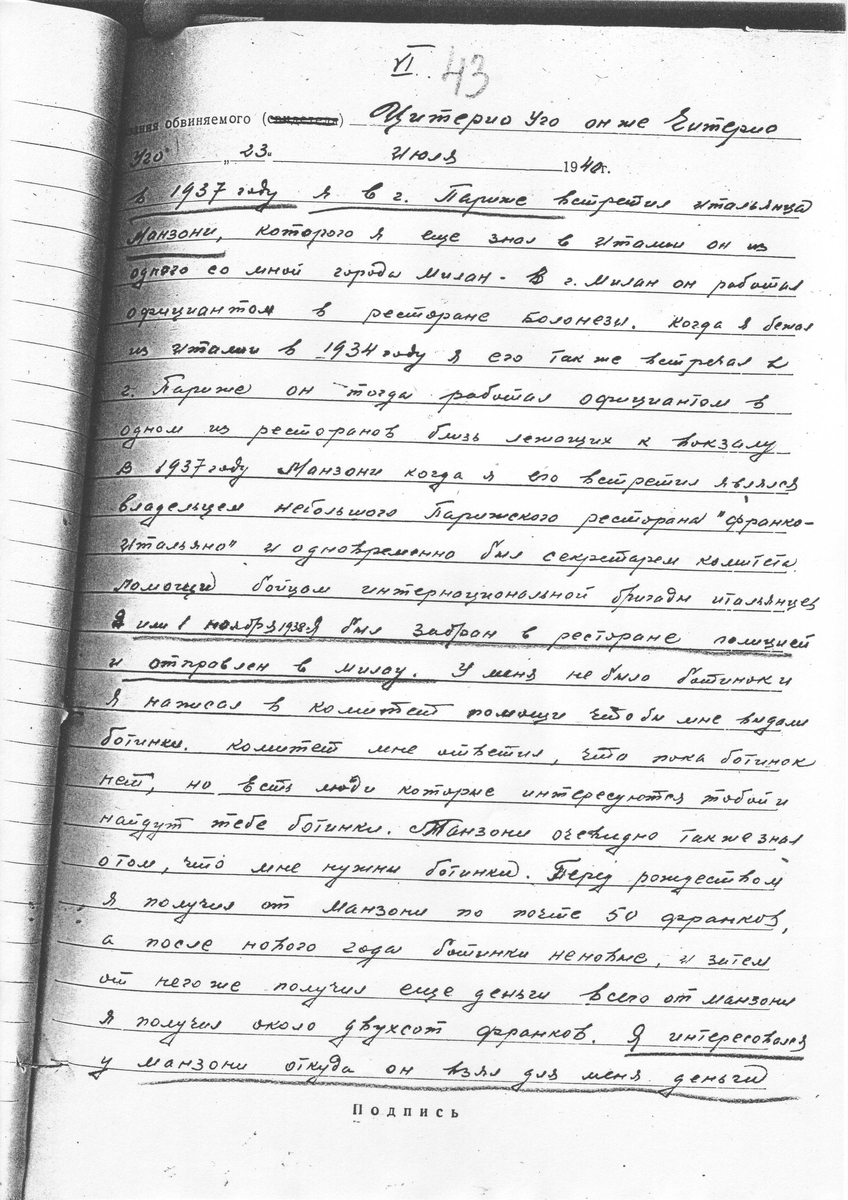 VI. 43
зания обвиняемого (свидетеля) Цитерио Уго он же Читерио
Уго „23„ Июля 1940 г.
в 1937 году я в г. Париже встретил итальянца
Манзони, которого я еще знал в Италии он из
одного со мной города Милан. В г. Милан он работал
официантом в ресторане Болонези. Когда я бежал
из Италии в 1934 году я его так же встречал в
г. Париже он тогда работал официантом в
одном из ресторанов близь лежащих к вокзалу
В 1937 году Манзони когда я его встретил являлся
владельцем небольшого Парижского ресторана "Франко-
Итальяно" и одновременно был секретарем комитета
помощи бойцам интернациональной бригады итальянцев
или 1 ноября 1938 Я был забран в ресторане полицией
и отправлен в Милау. У меня не было ботинок и
Я написал в комитет помощи чтобы мне выдали
ботинки. Комитет мне ответил, что пока ботинок
нет, но есть люди которые интересуются тобой и
найдут тебе ботинки. Манзони очевидно также знал
о том, что мне нужны ботинки. Перед рождеством
я получил от Манзони по почте 50 франков,
а после нового года ботинки неновые, и затем
от него же получил еще деньги всего от Манзони
я получил около двухсот франков. Я интересовался
у Манзони откуда он взял для меня деньги
Подпись